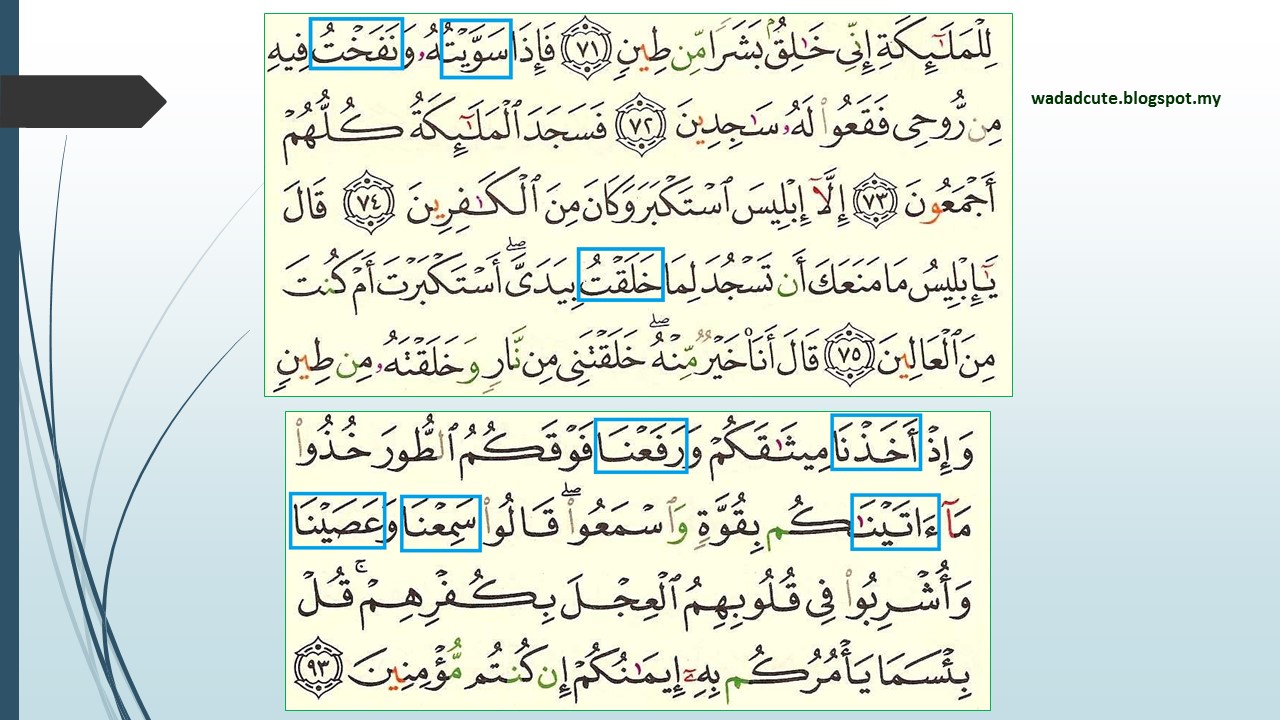 لِلْمَلَـٰٓئِكَةِ إِنِّى خَـٰلِقٌۢ بَشَرًا مِّن طِينٍ ﴿٧١﴾ فَإِذَا سَوَّيْتُهُۥ وَنَفَخْتُ فِيهِ
مِن رُّوحِى فَقَعُوا۟ لَهُۥ سَـٰجِدِينَ ﴿٧٢﴾ فَسَجَدَ ٱلْمَلَـٰٓئِكَةُ كُلُّهُمْ
أَجْمَعُونَ ﴿٧٣﴾ إِلَّآ إِبْلِيسَ ٱسْتَكْبَرَ وَكَانَ مِنَ ٱلْكَـٰفِرِينَ ﴿٧٤﴾ قَالَ
يَـٰٓإِبْلِيسُ مَا مَنَعَكَ أَن تَسْجُدَ لِمَا خَلَقْتُ بِيَدَىَّ ۖ أَسْتَكْبَرْتَ أَمْ كُنتَ
مِنَ ٱلْعَالِينَ ﴿٧٥﴾ قَالَ أَنَا۠ خَيْرٌ مِّنْهُ ۖ خَلَقْتَنِى مِن نَّارٍ وَخَلَقْتَهُۥ مِن طِينٍ
وَإِذْ أَخَذْنَا مِيثَـٰقَكُمْ وَرَفَعْنَا فَوْقَكُمُ ٱلطُّورَ خُذُوا۟
مَآ ءَاتَيْنَـٰكُم بِقُوَّةٍ وَٱسْمَعُوا۟ ۖ قَالُوا۟ سَمِعْنَا وَعَصَيْنَا
وَأُشْرِبُوا۟ فِى قُلُوبِهِمُ ٱلْعِجْلَ بِكُفْرِهِمْ ۚ قُلْ
بِئْسَمَا يَأْمُرُكُم بِهِۦٓ إِيمَـٰنُكُمْ إِن كُنتُم مُّؤْمِنِينَ ﴿٩٣﴾
wadadcute.blogspot.my